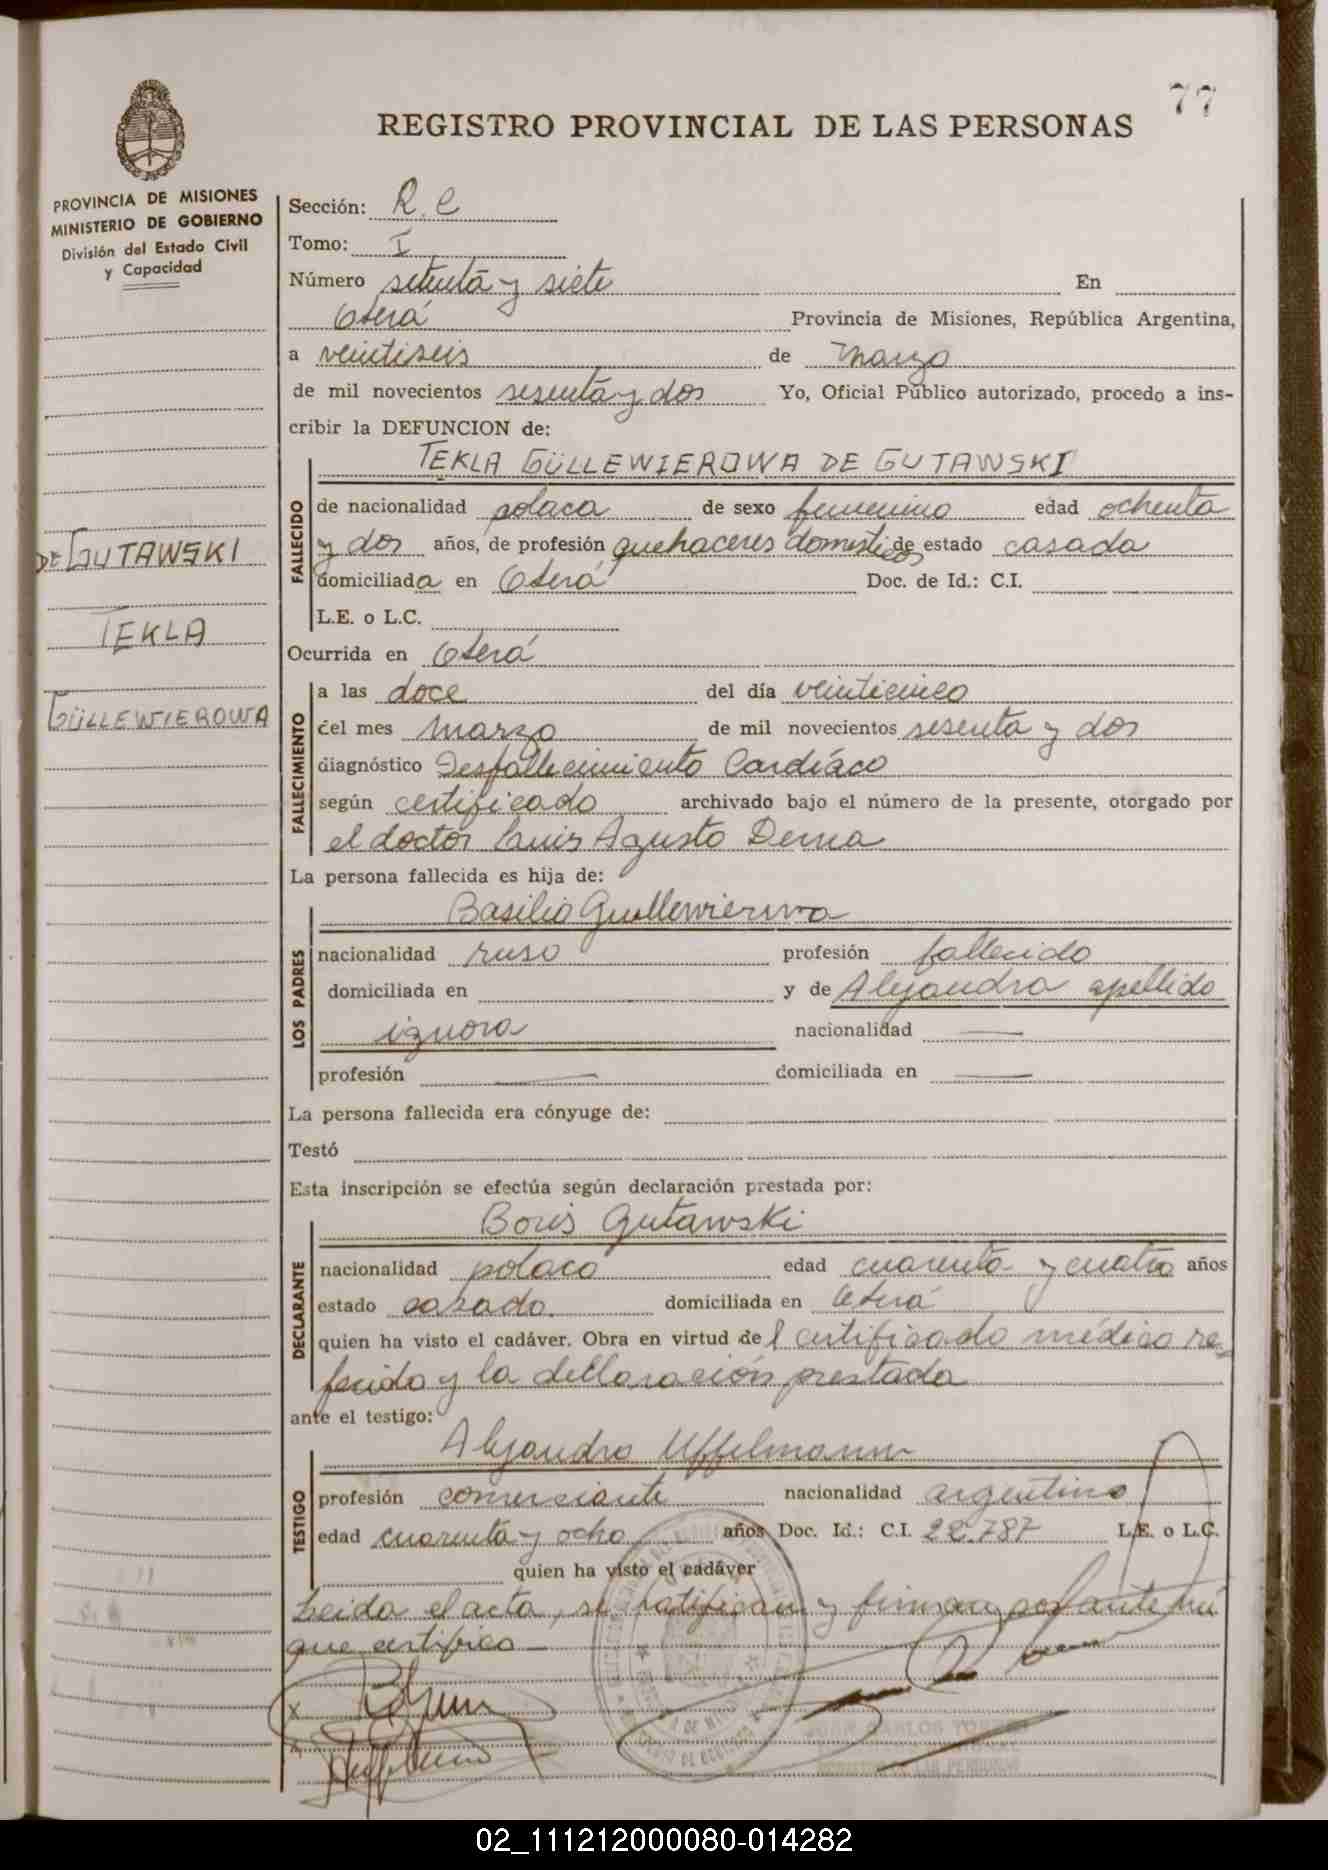 77
REGISTRO PROVINCIAL DE LAS PERSONAS
PROVINCIA DE MISIONES
MINISTERIO DE GOBIERNO
División del Estado Civil
y Capacidad
DE GUTAWSKI
TEKLA
GÜLLEWIEROWA
Sección: R.C
Tomo: I
Número setenta y siete En
Oberá Provincia de Misiones, República Argentina,
a veintiseis de marzo
de mil novecientos sesenta y dos Yo, Oficial Público autorizado, procedo a ins-
cribir la DEFUNCION de:
TEKLA GÜLLEWIEROWA DE GUTAWSKI
FALLECIDO
de nacionalidad polaca de sexo femenino edad ochenta
y dos años, de profesión quehaceres domesticos de estado casada
domiciliada en Oberá Doc. de Id.: C.I.
L.E. o L.C.
Ocurrida en Oberá
FALLECIMIENTO
a las doce del día veinticinco
del mes marzo de mil novecientos sesenta y dos
diagnóstico Desfallecimiento Cardíaco
según certificado archivado bajo el número de la presente, otorgado por
el doctor Luis Agusto Derna
La persona fallecida es hija de:
LOS PADRES
Basilio Guellewierowa
nacionalidad ruso profesión fallecido
domiciliada en y de Alejandra apellido
ignora nacionalidad —
profesión — domiciliada en —
La persona fallecida era cónyuge de:
Testó
Esta inscripción se efectúa según declaración prestada por:
DECLARANTE
Boris Gutawski
nacionalidad polaco edad cuarenta y cuatro años
estado casado. domiciliada en Oberá
quien ha visto el cadáver. Obra en virtud del certificado médico re-
ferido y la declaración prestada
ante el testigo:
TESTIGO
Alejandro Uffelmann
profesión comerciante nacionalidad argentino
edad cuarenta y ocho años Doc. Id.: C.I. 22.787 L.E. o L.C.
quien ha visto el cadáver
Leida el acta, se ratifican y firman por ante mi
que certifico —
x
x
JUAN CARLOS
02_111212000080-014282